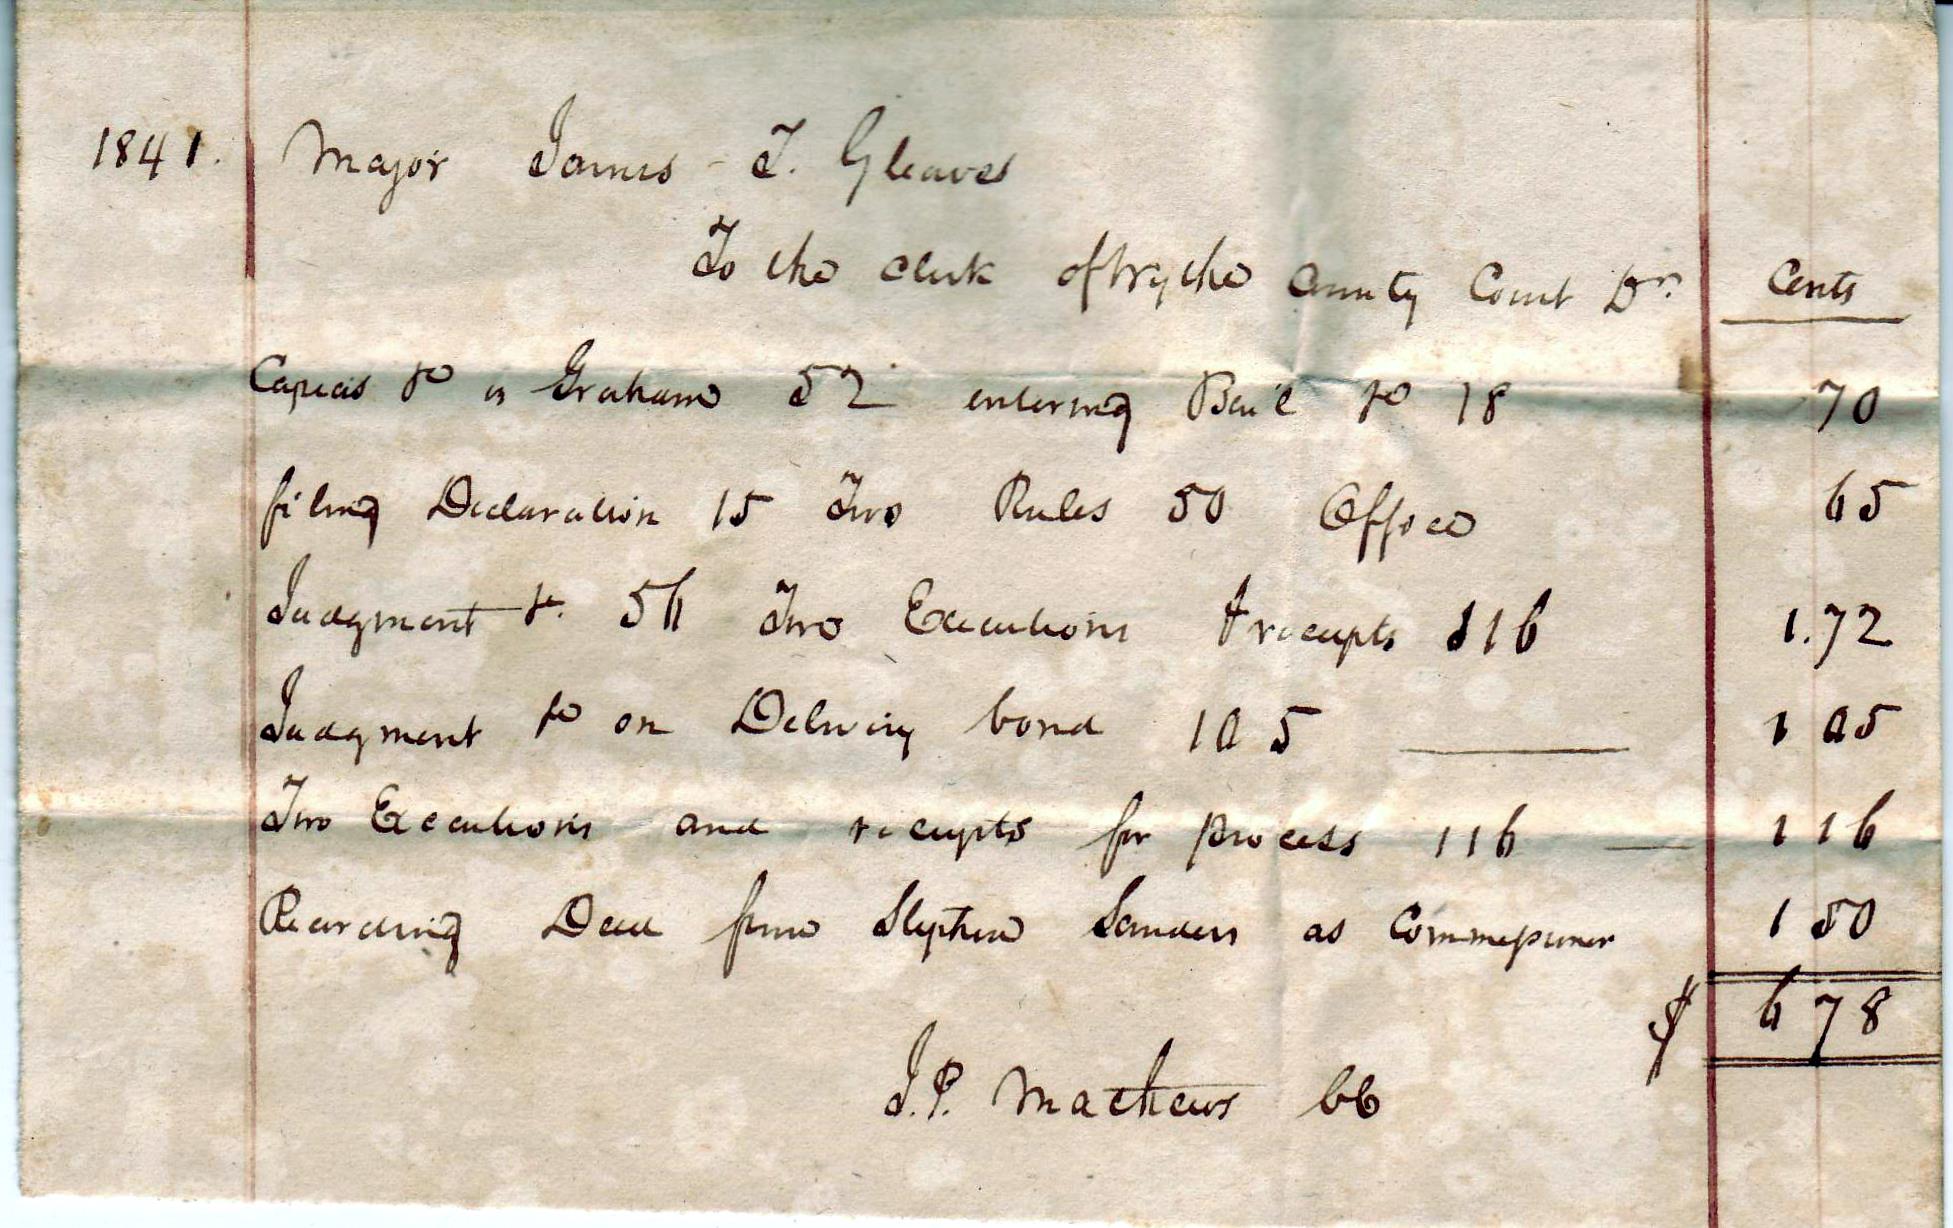 1841. Major James T. Gleaves
To the clerk of Wythe County Court Dr. Cents
Capias &c vs Graham 52 entering Bail &c 18 70
filing Declaration 15 Two Rules 50 Office 65
Judgment &c. 56 Two Executions & receipts 116 1.72
Judgment &c on Delivery bond 105 1 05
Two Executions and receipts for process 116 1 16
Recording Deed from Stephen Sanders as Commissioner 1 50
$ 6 78
J. P. Mathews CC